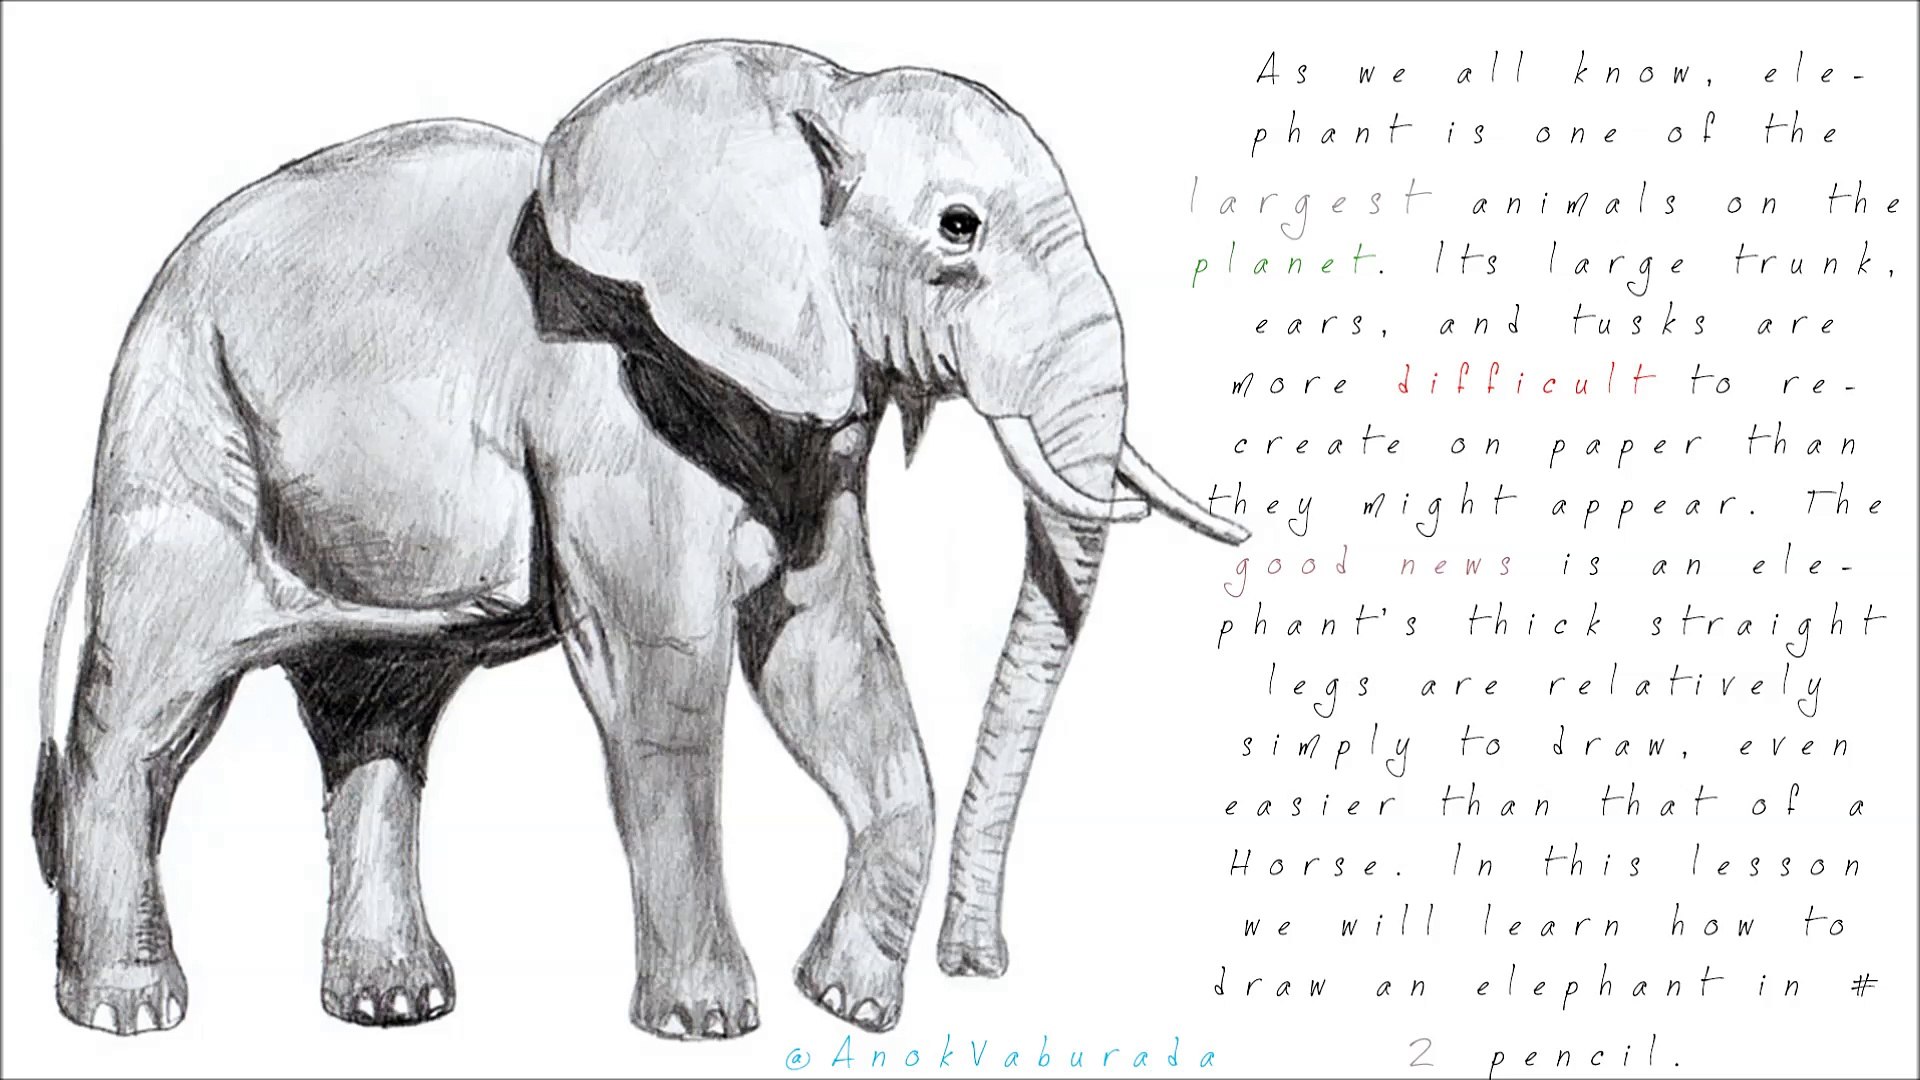 As we all know, ele-
phant is one of the
largest animals on the
planet. Its large trunk,
ears, and tusks are
more difficult to re-
create on paper than
they might appear. The
good news is an ele-
phant's thick straight
legs are relatively
simply to draw, even
easier than that of a
Horse. In this lesson
we will learn how to
draw an elephant in #
2 pencil.
@AnokVaburada